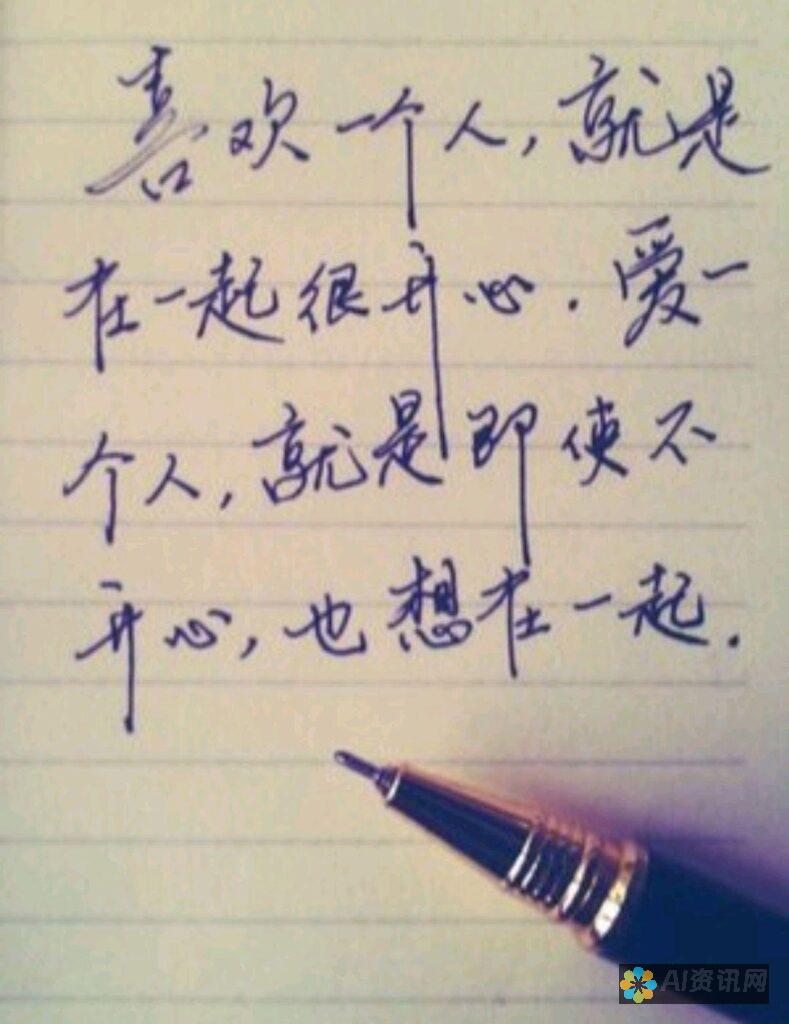 喜欢一个人,就是
在一起很开心.爱一
个人,就是即使不
开心,也想在一起.
AI资讯网